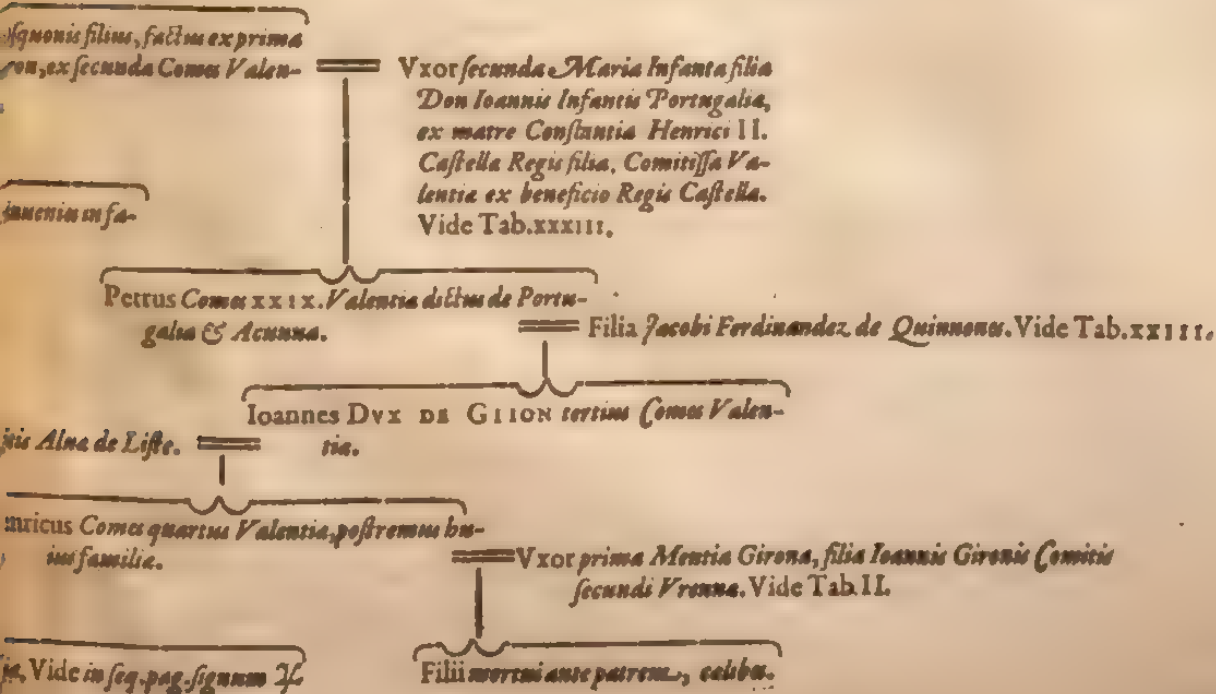 squonis filius, factus ex prima
ron, ex secunda Comes Valen-
Vxor secunda Maria Infanta filia
Don Ioannis Infantis Portugaliæ,
ex matre Constantia Henrici II.
Castellæ Regis filia, Comitissa Va-
lentiæ ex beneficio Regis Castellæ.
Vide Tab.XXXIII.
inuenius in fa-
Petrus Comes XXIX. Valentiæ dictus de Portu-
galia & Acunna.
Filia Jacobi Ferdinandez de Quinnones. Vide Tab.XXIII.
Ioannes DVX DE GIION tertius Comes Valen-
tiæ.
itis Alua de Liste.
nricus Comes quartus Valentiæ, postremus hu-
ius familiæ.
Vxor prima Mentia Girona, filia Ioannis Gironis Comitis
secundi Vrenna. Vide Tab.II.
Vide in seq. pag. signum
Filii mortui ante patrem, cælibes.